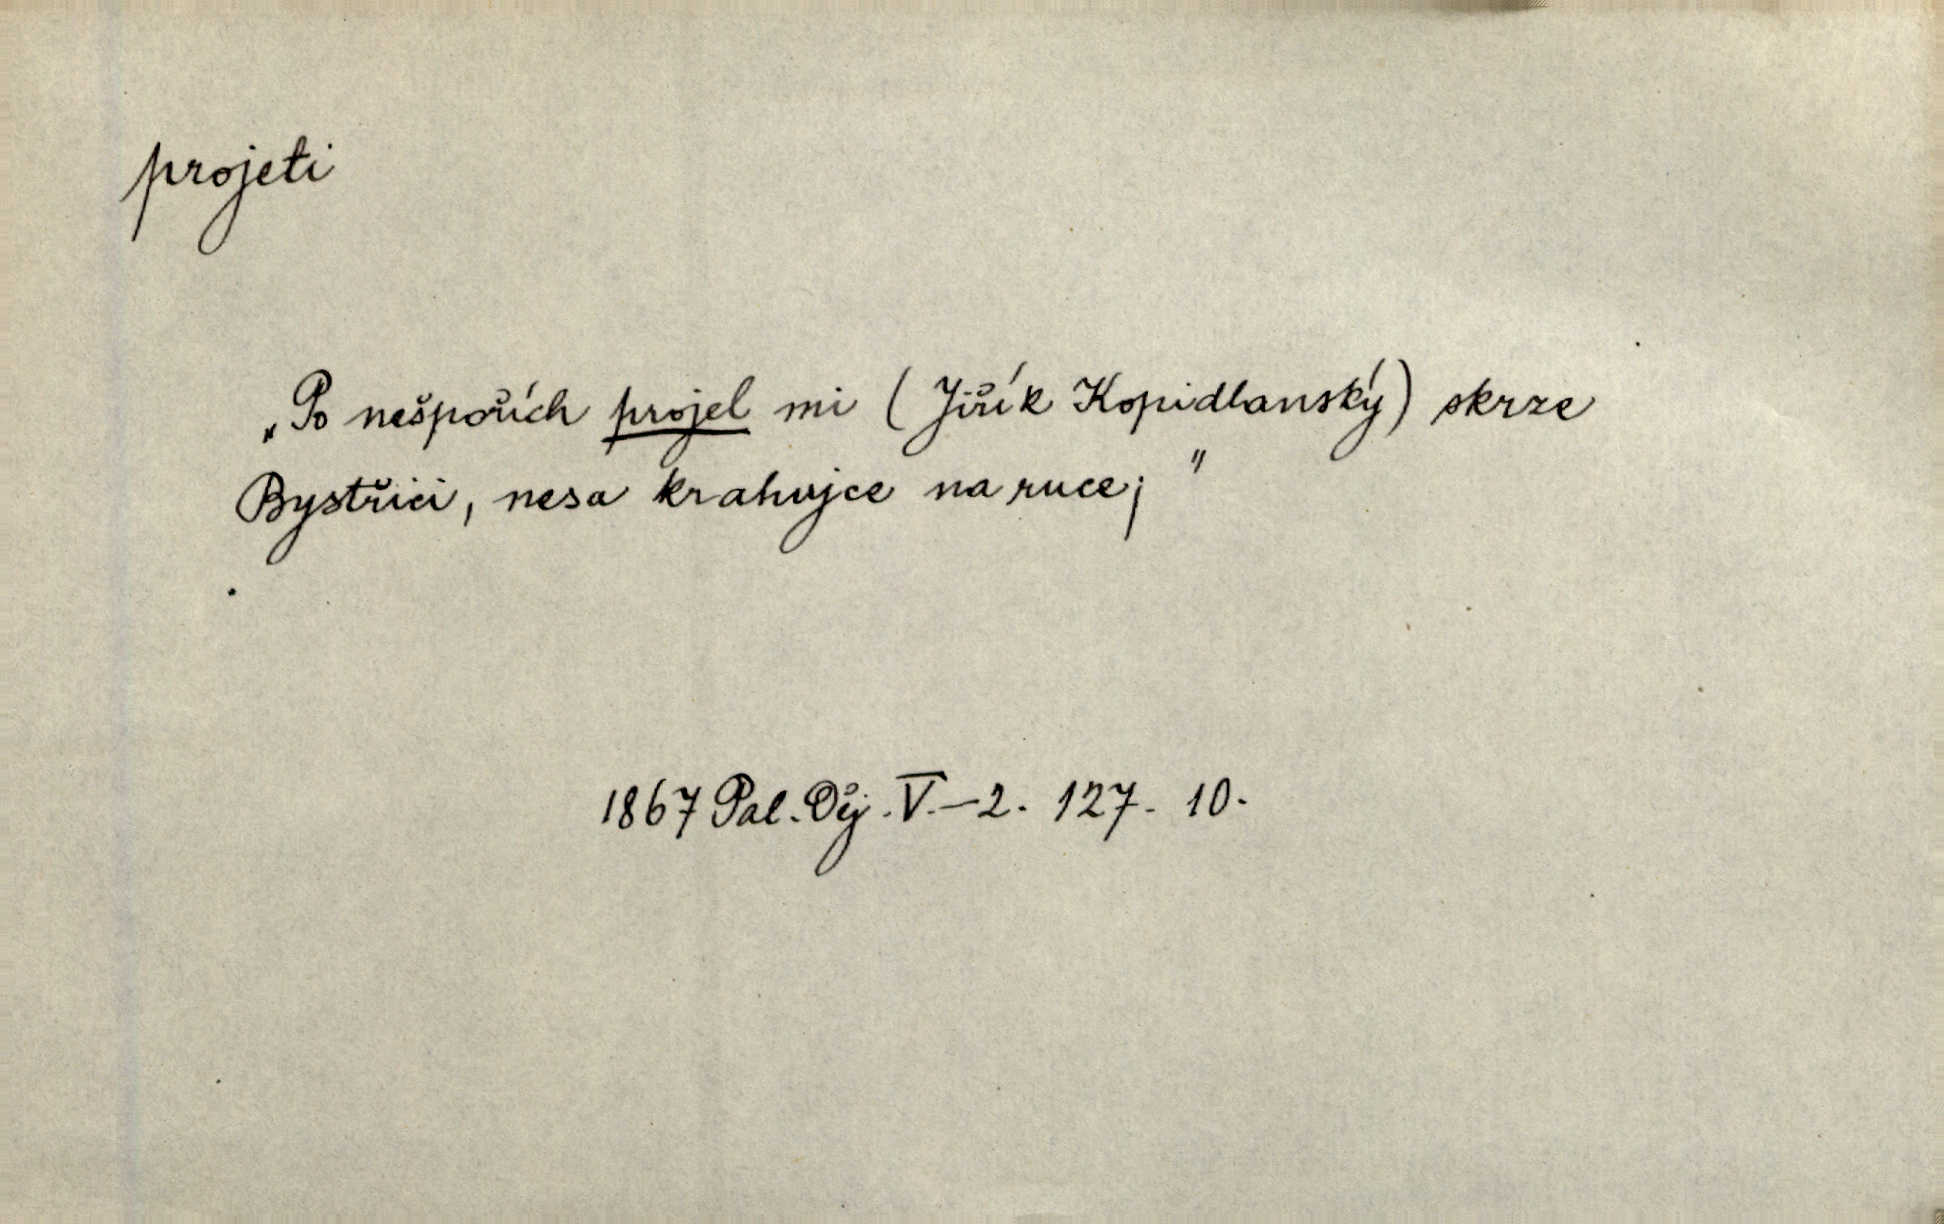 projeti
„Po nešpořích projel mi (Jiřík Kopidlanský) skrze
Bystřici, nesa krahujce na ruce; "
1867 Pal. Děj. V.—2. 127. 10.